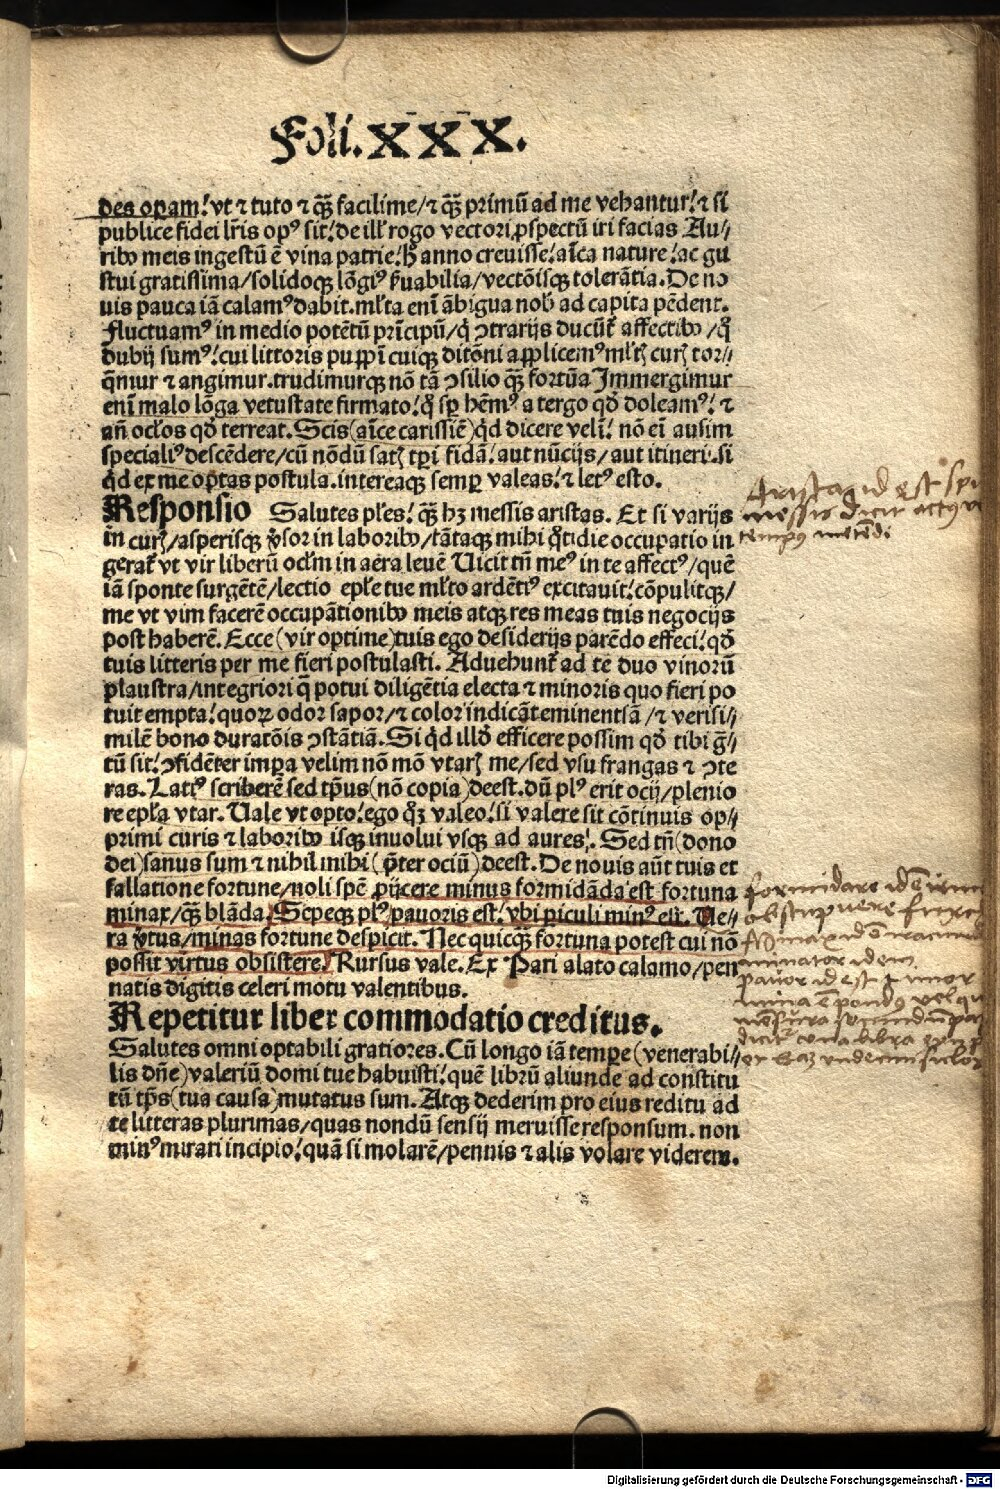 Foli. XXX.
des opam! vt ⁊ tuto ⁊ qȝ̃ facilime/⁊ qȝ̃ primũ ad me vehantur! ⁊ si
publice fidei lr̃is opꝰ sit! de ill' rogo vectori ꝓspectũ iri facias Au//
ribꝰ meis ingestũ ẽ vina patrie! h̃ anno creuisse! aĩca nature! ac gu
stui gratissima/solidoqꝫ lõgiꝰ ẜuabilia/vectõisqꝫ tolerãtia. De no
uis pauca iã calamꝰ dabit. ml'ta enĩ ãbigua nob̃ ad capita pẽdent.
fluctuamꝰ in medio potẽtũ prĩcipũ/q̇ ↄtrarijs ducũt̃ affectibꝰ/q̃
dubij sumꝰ! cui littoris puppĩ cuiqꝫ ditõni applicemꝰ ml'tꝭ curꝭ tor//
q̃mur ⁊ angimur. trudimurqꝫ nõ tã ↄsilio qȝ̃ fortũa Immergimur
enĩ malo lõga vetustate firmato! q̃ sꝑ hẽmꝰ a tergo qd̃ doleamꝰ! ⁊
añ ocl'os qd̃ terreat. Scis (aĩce carissiẽ) qd̃ dicere velĩ! nõ eĩ ausim
specialiꝰ descẽdere/cũ nõdũ satꝭ tꝑi fidã! aut nũcijs/aut itineri. si
q̇d ex me optas postula. intereaqꝫ semꝑ valeas! ⁊ letꝰ esto.
Responsio Salutes pl'es! qȝ̃ hꝫ messis aristas. Et si varijs
in curꝭ/asperisqꝫ v̾sor in laboribꝰ/tãtaqꝫ mihi q̃tidie occupatio in
gerat̃ vt vir liberũ ocl'm in aera leuẽ Uicit tñ meꝰ in te affectꝰ/quẽ
iã sponte surgẽtẽ/lectio epl'e tue ml'to ardẽtiꝰ excitauit! cõpulitqꝫ/
me vt vim facerẽ occupãtionibꝰ meis atqꝫ res meas tuis negocijs
post haberẽ. Ecce (vir optime) tuis ego desiderijs parẽdo effeci! qd̃
tuis litteris per me fieri postulasti. Aduehunt̃ ad te duo vinorũ
plaustra/integriori q̃ potui diligẽtia electa ⁊ minoris quo fieri po
tuit empta! quoꝝ odor sapor/⁊ color indicãt eminentiã /⁊ verisi//
milẽ bono duratõis ↄstãtiã. Si q̇d illo᷑ efficere possim qd̃ tibi g̃//
tũ sit! ↄfidẽter imꝑa velim nõ mõ vtarꝭ me/sed vsu frangas ⁊ ↄte
ras. Latiꝰ scriberẽ sed tp̃us (nõ copia) deest. dũ plꝰ erit ocij/plenio
re epl'a vtar. Uale vt opto! ego qȝ valeo! si valere sit cõtinuis op//
primi curis ⁊ laboribꝰ isqꝫ inuolui vsqꝫ ad aures!. Sed tñ (dono
dei) sanus sum ⁊ nihil mihi (p̃ter ociũ) deest. De nouis aũt tuis et
fallatione fortune/noli spẽ ꝓijcere minus formidãda est fortuna
minax/qȝ̃ blãda. Sepeqꝫ plꝰ pauoris est! vbi ꝑiculi minꝰ est. Ue//
ra v̾tus/minas fortune despicit. Nec quicqȝ̃ fortuna potest cui nõ
possit virtus obsistere. Rursus vale. Ex Pari alato calamo/pen
natis digitis celeri motu valentibus.
Repetitur liber commodatio creditus.
Salutes omni optabili gratiores. Cũ longo iã tempe (venerabi//
lis dñe) valeriũ domi tue habuisti! quẽ librũ aliunde ad cõstitu
tũ tp̃s (tua causa) mutatus sum. Atqꝫ dederim pro eius reditu ad
te litteras plurimas/quas nondũ sensij meruisse responsum. non
minꝰ mirari incipio! quã si molarẽ/pennis ⁊ alis volare viderem.
Arista id est
messis dicit actus
tempus metẽdi
formidare id ẽ
obstupuere
Minax id ẽ
minator idem
pauor id est timor
mina ẽ pondus vel
mẽsura secundũ
dicit libra
Digitalisierung gefördert durch die Deutsche Forschungsgemeinschaft - DFG